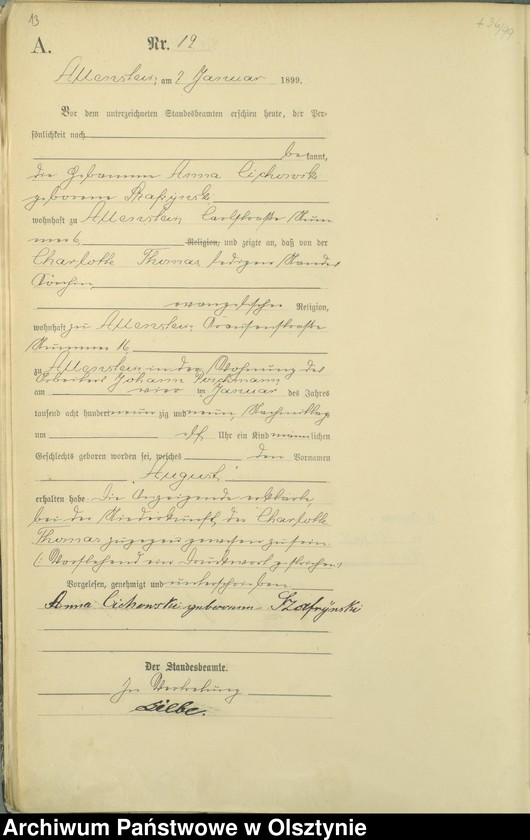 13
A. Nr. 19
Allenstein, am 7 Januar 1899.
Vor dem unterzeichneten Standesbeamten erschien heute, der Per-
sönlichkeit nach
bekannt,
die Hebamme Anna Cichowski
geborene
wohnhaft zu Allenstein, Carlstraße Num
mer 6, Religion, und zeigte an, daß von der
Charlotte Thomas, ledigen Standes
Köchin
evangelischer Religion,
wohnhaft zu Allenstein, straße
Nummer 16,
zu Allenstein, in der Wohnung des
Arbeiters Johann
am vier im Januar des Jahres
tausend acht hundert neun zig und neun, Nachmittag
um elf Uhr ein Kind männlichen
Geschlechts geboren worden sei, welches den Vornamen
August
erhalten habe. Die Anzeigende erklärte,
bei der Niederkunft der Charlotte
Thomas zugegen gewesen zu sein.
(: Vorstehend ein Druckwort gestrichen)
Vorgelesen, genehmigt und unterschrieben
Anna Cichowski geborene Szafrynski
Der Standesbeamte.
In Vertretung
Archiwum Państwowe w Olsztynie